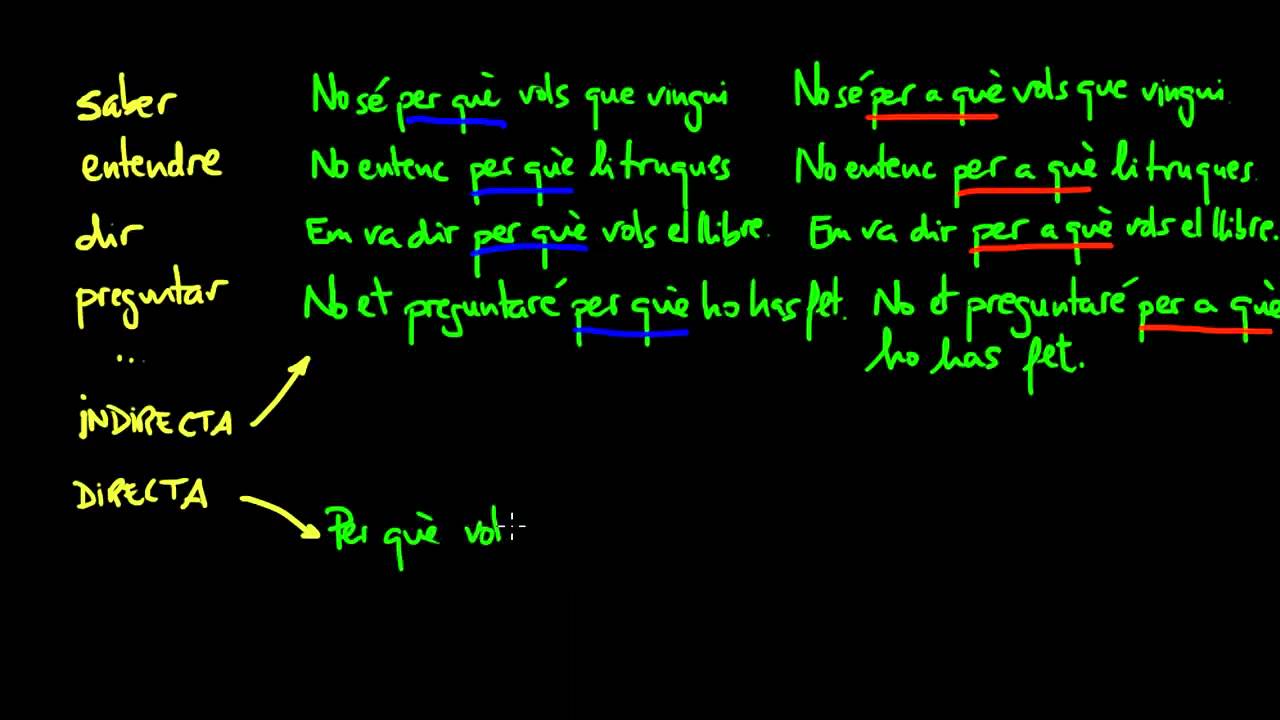 saber No sé per què vols que vingui No sé per a què vols que vingui.
entendre No entenc per què li truques No entenc per a què li truques.
dir Em va dir per què vols el llibre. Em va dir per a què vols el llibre.
preguntar No et preguntaré per què ho has fet. No et preguntaré per a què
... ho has fet.
INDIRECTA
DIRECTA
Per què vol